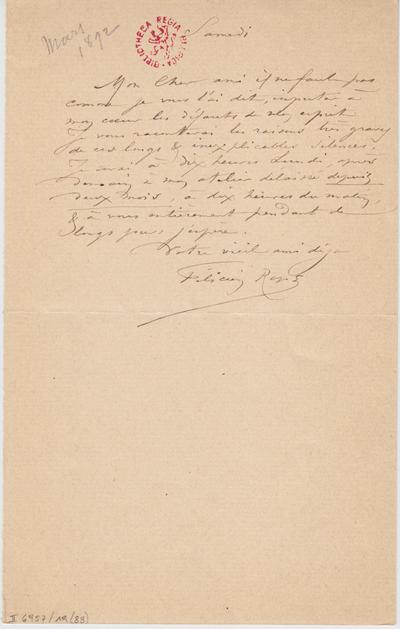 Mars
1892
BIBLIOTHECA REGIA BELGICA
Samedi
Mon Cher ami il ne faut pas
comme je vous l'ai dit, imputer à
mon cœur les défauts de mon esprit
Je vous raconterai les raisons très graves
de ces longs & inexplicables silences.
Je serai à dix heures Lundi, après
demain à mon atelier délaissé depuis
deux mois, à dix heures du matin,
& à vous entièrement pendant de
longs jours j'espère.
Votre vieil ami déjà
Félicien Rops
II 6957/19 (83)